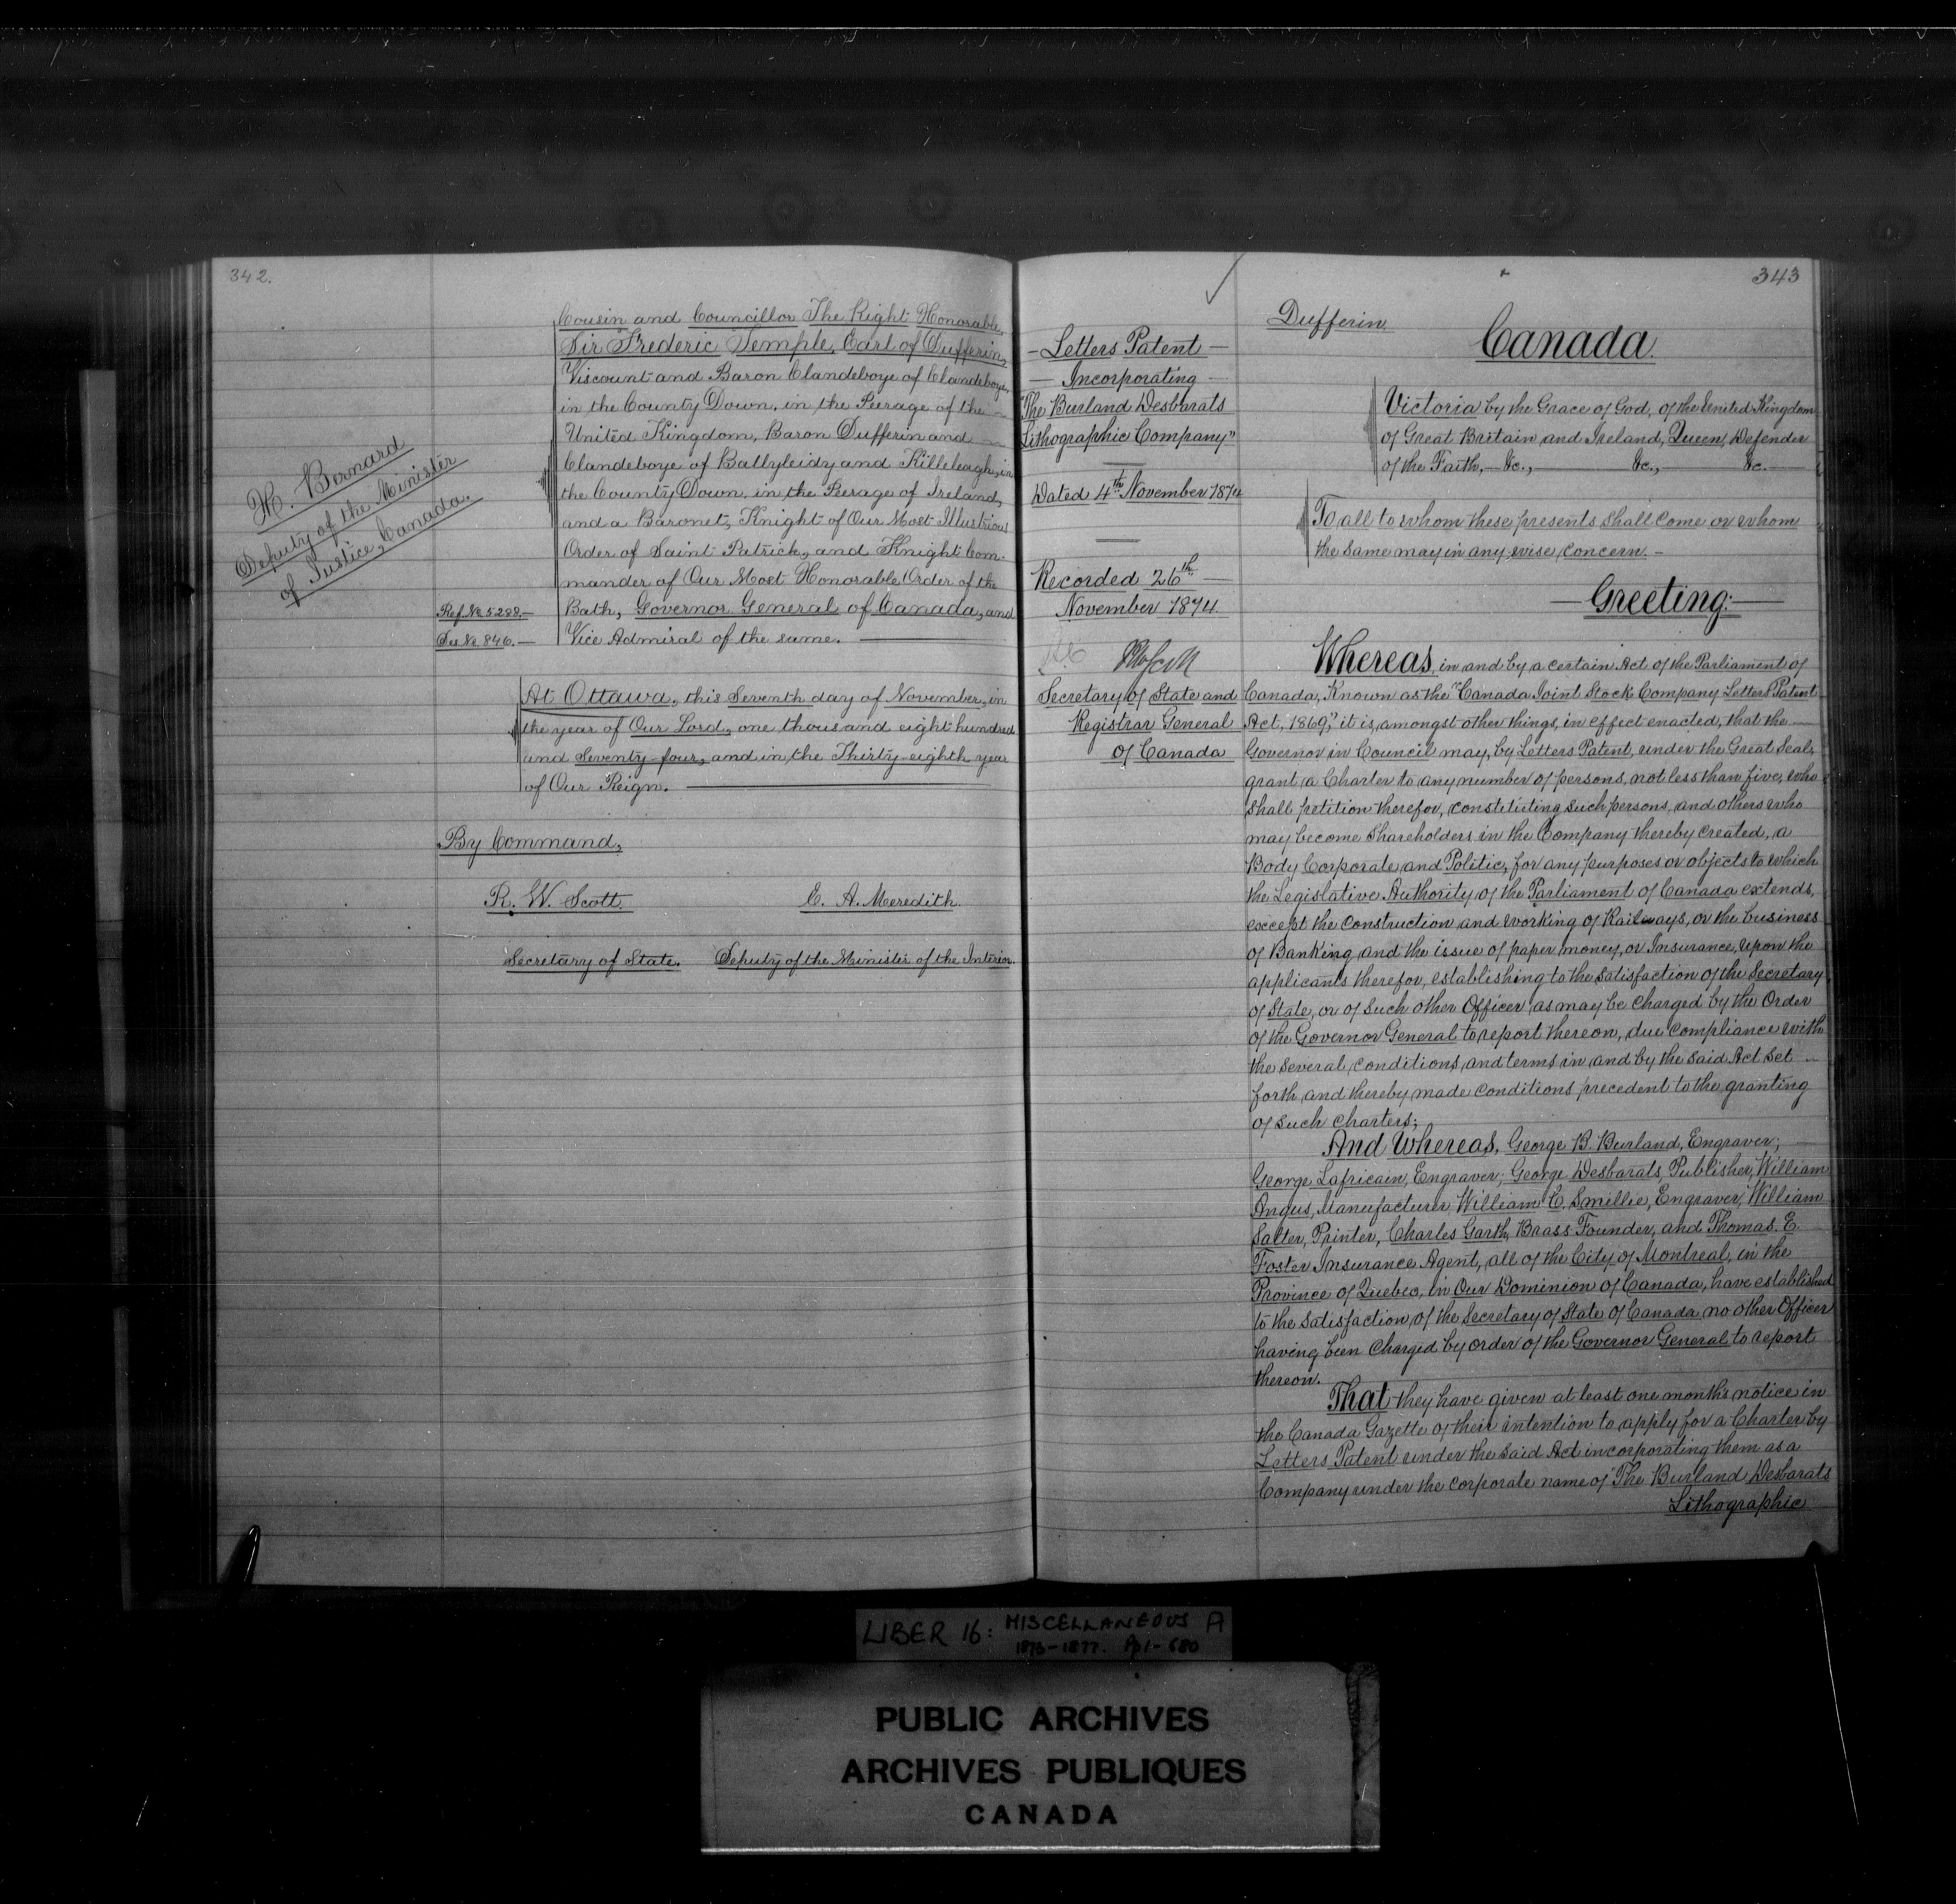 342.
Cousin and Councillor The Right Honorable
Sir Frederic Temple, Earl of Dufferin,
Viscount and Baron Clandeboye of Clandeboye,
in the County Down, in the Peerage of the
United Kingdom, Baron Dufferin and
Clandeboye of Ballyleidy and Killeleagh, in
the County Down, in the Peerage of Ireland,
and a Baronet, Knight of Our Most Illustrious
Order of Saint Patrick, and Knight Com-
mander of Our Most Honorable Order of the
Bath, Governor General of Canada, and
Vice Admiral of the same.
H. Bernard
Deputy of the Minister
of Justice, Canada.
Ref. No. 5288.
Des No. 846.
At Ottawa, this Seventh day of November, in
the year of Our Lord, one thousand eight hundred
and Seventy-four, and in the Thirty-eighth year
of Our Reign.
By Command,
R. W. Scott
E. A. Meredith.
Secretary of State.
Deputy of the Minister of the Interior.
343
- Letters Patent -
- Incorporating -
"The Burland Desbarats
Lithographic Company"
Dated 4th November 1874
Recorded 26th
November 1874.
RW Scott
Secretary of State and
Registrar General
of Canada
Dufferin
Canada.
Victoria by the Grace of God, of the United Kingdom
of Great Britain and Ireland, Queen, Defender
of the Faith, &c., &c., &c.
To all to whom these presents shall come or whom
the same may in any wise concern. -
Greeting:
Whereas, in and by a certain Act of the Parliament of
Canada, Known as the "Canada Joint Stock Company Letters Patent
Act, 1869," it is, amongst other things, in effect enacted, that the
Governor in Council may, by Letters Patent, under the Great Seal,
grant a Charter to any number of persons, not less than five, who
shall petition therefor, constituting such persons, and others who
may become Shareholders in the Company thereby created, a
Body Corporate and Politic, for any purposes or objects to which
the Legislative Authority of the Parliament of Canada extends,
except the construction and working of Railways, or the business
of Banking and the issue of paper money, or Insurance, upon the
applicants therefor, establishing to the satisfaction of the Secretary
of State, or of such other Officer, as may be charged by the Order
of the Governor General to report thereon, due compliance with
the several conditions and terms in and by the said Act set
forth, and thereby made conditions precedent to the granting
of such charters;
And Whereas, George B. Burland, Engraver;
George Lafricain, Engraver; George Desbarats, Publisher; William
Angus, Manufacturer; William C. Smillie, Engraver; William
Salter, Printer, Charles Garth, Brass Founder, and Thomas. E.
Foster Insurance Agent, all of the City of Montreal, in the
Province of Quebec, in Our Dominion of Canada, have established
to the satisfaction of the Secretary of State of Canada no other Officer
having been charged by order of the Governor General to report
thereon.
That they have given at least one month's notice in
the Canada Gazette of their intention to apply for a Charter by
Letters Patent under the said Act incorporating them as a
Company under the corporate name of "The Burland Desbarats
Lithographic
LIBER 16: MISCELLANEOUS A
1873-1877. Pp 1-680
PUBLIC ARCHIVES
ARCHIVES PUBLIQUES
CANADA